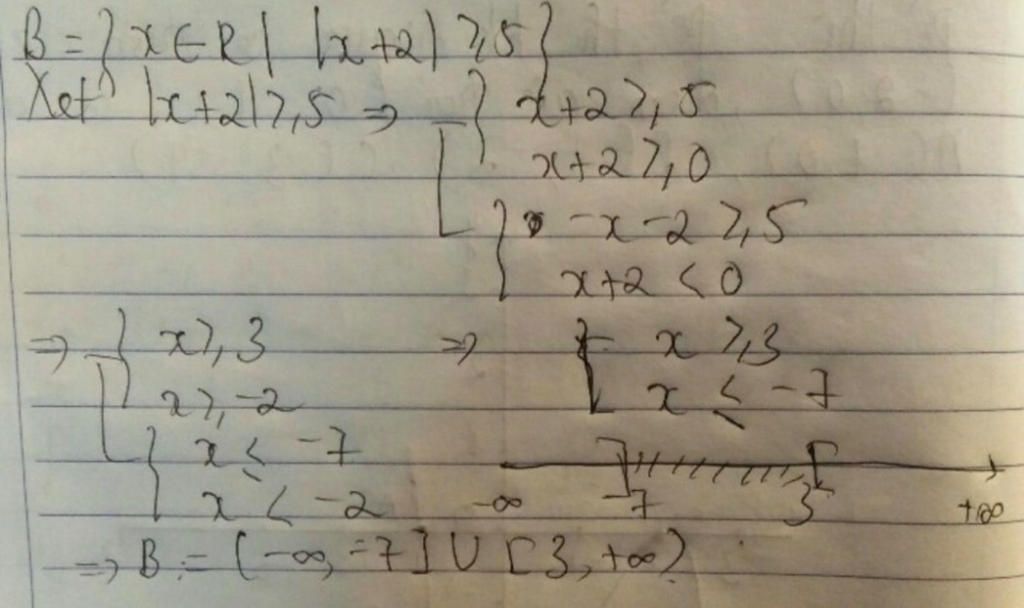 B = { x ∈ R | |x+2| ≥ 5 }
Xét |x+2| ≥ 5 ⇒ [ { x+2 ≥ 5
x+2 ≥ 0
{ -x-2 ≥ 5
x+2 < 0
⇒ [ { x ≥ 3 ⇒ [ x ≥ 3
x ≥ -2 x ≤ -7
{ x ≤ -7 ] [
x < -2 -∞ -7 3 +∞
⇒ B = (-∞, -7] ∪ [3, +∞)